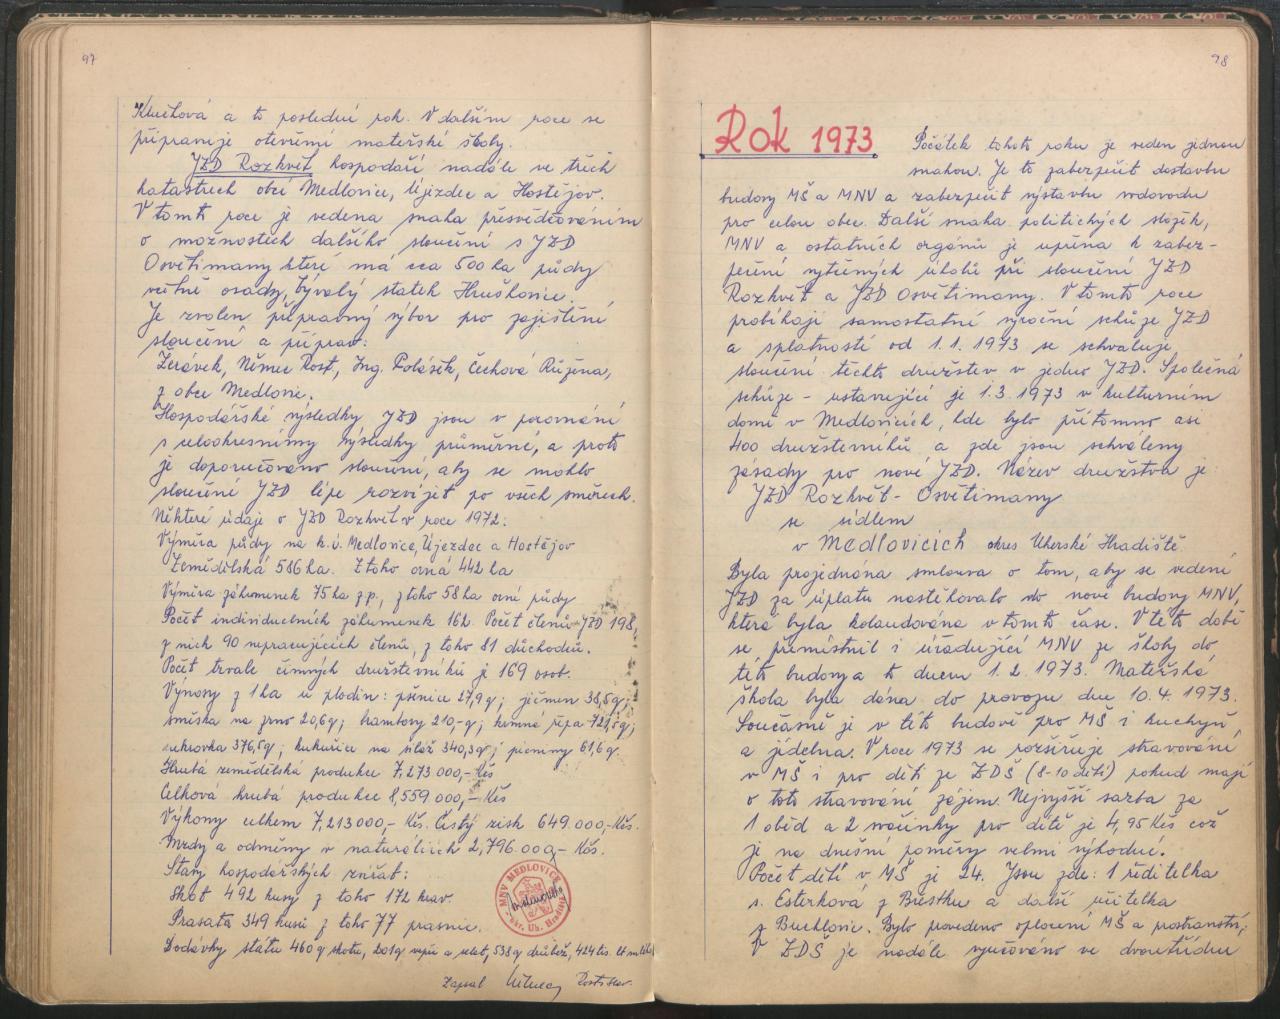 97
Klučková a to poslední rok. V dalším roce se
připravuje otevření mateřské školy.
JZD Rozkvět hospodaří nadále ve třech
katastrech obcí Medlovice, Újezdce a Hostějov.
V tomto roce je vedena snaha přesvědčováním
o možnostech dalšího sloučení s JZD
Osvětimany které má cca 500 ha půdy
včetně osady, bývalý statek Hruškovice.
Je zvolen přípravný výbor pro zajištění
sloučení a příprav:
Žerávek, Němec Rost, Ing. Polášek, Čechová Růžena,
z obce Medlovic.
Hospodářské výsledky JZD jsou v porovnání
s celookresními výsledky průměrné, a proto
je doporučováno sloučení, aby se mohlo
sloučení JZD lépe rozvíjet po všech směrech.
Některé údaje o JZD Rozkvět v roce 1972:
Výměra půdy na k.ú. Medlovice, Újezdec a Hostějov
Zemědělská 586 ha. Z toho orná 442 ha
Výměra záhumenek 75 ha z.p., z toho 58 ha orné půdy
Počet individuelních záhumenek 162. Počet členů JZD 198,
z nich 90 nepracujících členů, z toho 81 důchodců.
Počet trvale činných družstevníků je 169 osob.
Výnosy z 1 ha u plodin: pšenice 27,9 q; ječmen 38,5 q;
směska na zrno 20,6 q; brambory 210,- q; krmná řepa 721,5 q;
cukrovka 376,5 q; kukuřice na siláž 340,3 q; pícniny 61,6 q.
Hrubá zemědělská produkce 7,273 000,- Kčs
Celková hrubá produkce 8,559 000,- Kčs
Výkony celkem 7,213 000,- Kčs. Čistý zisk 649.000,- Kčs.
Mzdy a odměny v naturaliích 2,796.000,- Kčs.
Stavy hospodářských zvířat:
Skot 492 kusy z toho 172 krav.
Prasata 349 kusů z toho 77 prasnic.
Dodávky státu 460 q skotu, 201 q vepř a selat, 538 q drůbež, 424 tis. lt mléka
Zapsal Rostislav.
MNV MEDLOVICE
okr. Uh. Hradiště
98
Rok 1973
Počátek tohoto roku je veden jednou
snahou. Je to zabezpečit dostavbu
budovy MŠ a MNV a zabezpečit výstavbu vodovodu
pro celou obec. Další snaha politických složek,
MNV a ostatních orgánů je upřena k zabez-
pečení vytčených úkolů při sloučení JZD
Rozkvět a JZD Osvětimany. V tomto roce
probíhají samostatné výroční schůze JZD
a splatností od 1.1.1973 se schvaluje
sloučení těchto družstev v jedno JZD. Společná
schůze - ustavující je 1.3.1973 v kulturním
domě v Medlovicích, kde bylo přítomno asi
400 družstevníků a zde jsou schváleny
zásady pro nové JZD. Název družstva je:
JZD Rozkvět - Osvětimany
se sídlem
v Medlovicích okres Uherské Hradiště.
Byla projednána smlouva o tom, aby se vedení
JZD za úplatu nastěhovalo do nové budovy MNV,
která byla kolaudována v tomto čase. V této době
se přemístnil i úřadující MNV ze školy do
této budovy a to dnem 1.2.1973. Mateřská
škola byla dána do provozu dne 10.4.1973.
Současně je v této budově pro MŠ i kuchyň
a jídelna. V roce 1973 se rozšiřuje stravování
v MŠ i pro děti ze ZDŠ (8-10 dětí) pokud mají
o toto stravování zájem. Nejvyšší sazba za
1 oběd a 2 svačinky pro dítě je 4,95 Kčs což
je na dnešní poměry velmi výhodné.
Počet dětí v MŠ je 24. Jsou zde: 1 ředitelka
s. Esterková z Břestku a další učitelka
z Buchlovic. Bylo provedeno oplocení MŠ a prostranství,
V ZDŠ je nadále vyučováno ve dvoutřídní